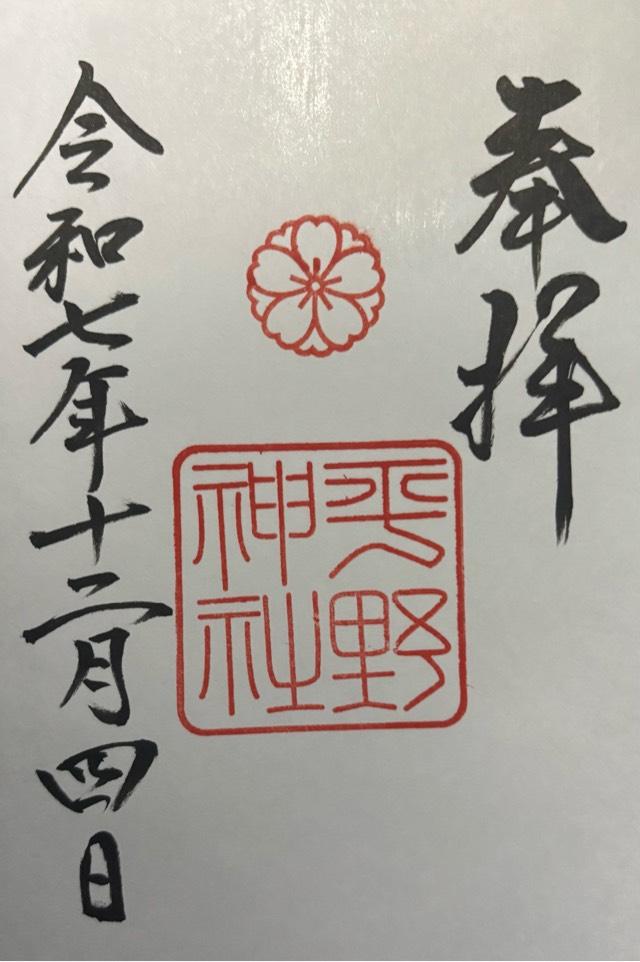 奉拝
平野
神社
令和七年十二月四日